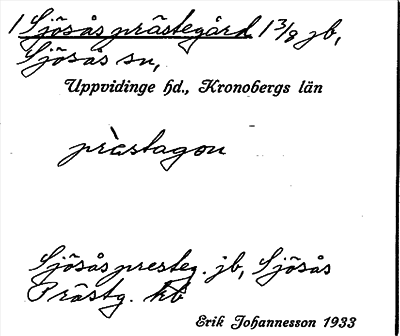 1 Sjösås prästegård 1 3/8 jb,
Sjösås sn,
Uppvidinge hd., Kronobergs län
prästagon
Sjösås presteg. jb, Sjösås
Prästg. kb
Erik Johannesson 1933